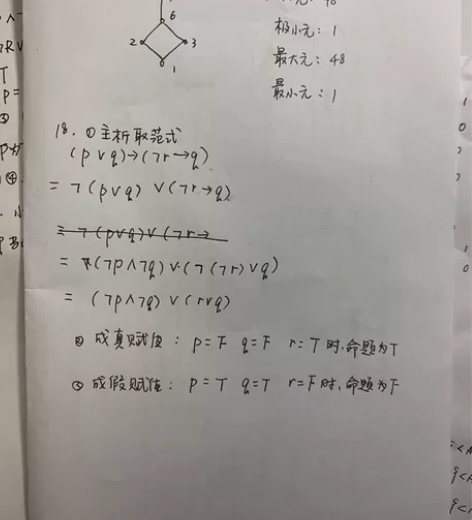 6
2
3
1
极小元：1
最大元：48
最小元：1
18. ①主析取范式
(p∨q)→(¬r→q)
= ¬(p∨q) ∨(¬r→q)
= (¬p∧¬q)∨(¬(¬r)∨q)
= (¬p∧¬q)∨(r∨q)
② 成真赋值： p=F q=F r=T时,命题为T
③ 成假赋值： p=T q=T r=F时,命题为F